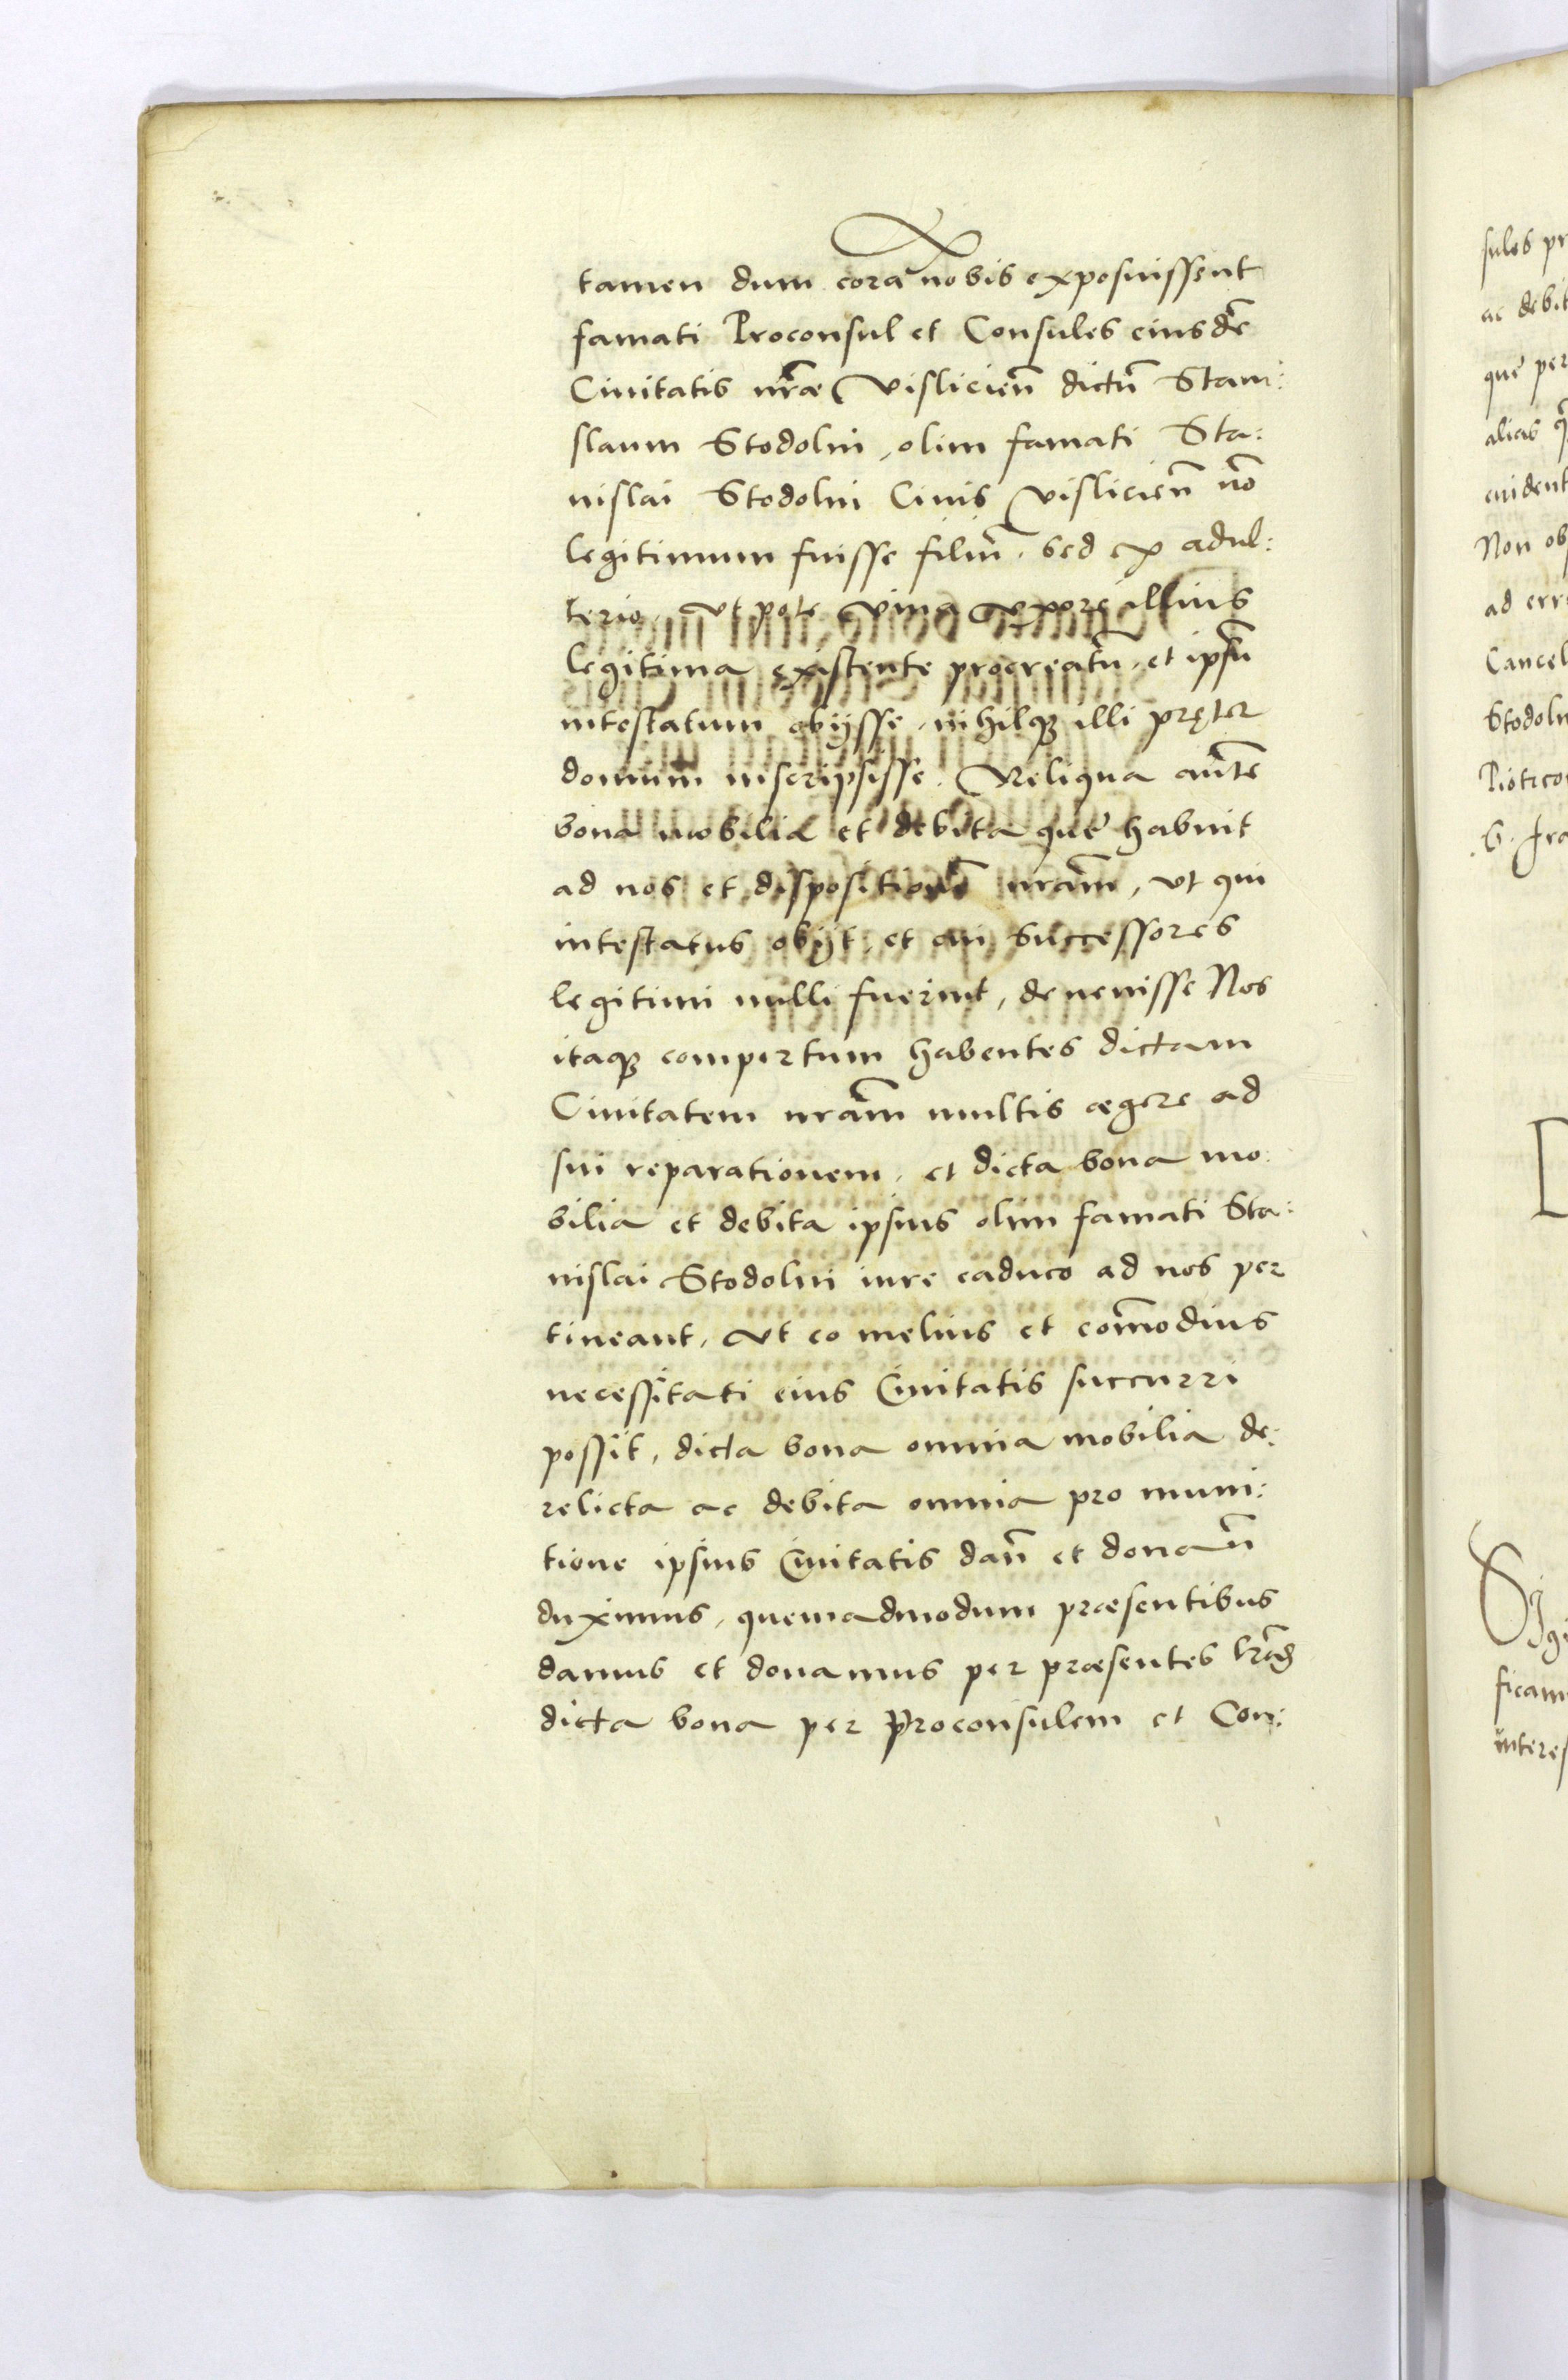 tamen dum corã nobis exposuissent
famati Proconsul et Consules eiusdẽ
Ciuitatis nr̃ae Visliciẽn dictũ Stani:
slaum Stodolni, olim famati Sta:
nislai Stodolni Ciuis Visliciẽn nõ
legitimum fuisse filiũ, sed ex adul:
terio, vt pote viua vxore illius
legitima existente procreatũ, et ipsũ
intestatum obijsse, nihilq3 illi pręter
domum inscripsisse. Reliqua autẽ
bona mobilia et debita quę habuit
ad nos et dispositionẽ nrãm, vt qui
intestatus obijt, et cui successores
legitimi nulli fuerint, deuenisse Nos
itaq3 compertum habentes dictam
Ciuitatem nrãm multis aegere ad
sui reparationem, et dicta bona mo:
bilia et debita ipsius olim famati Sta:
nislai Stodolni iure caduco ad nos per
tineant, Vt eo melius et com̃odius
necessitati eius Ciuitatis succurri
possit, dicta bona omnia mobilia de:
relicta ac debita omnia pro muni:
tione ipsius Ciuitatis dañ et donañ
duximus, quemadmodum praesentibus
damus et donamus per praesentes lrãs
dicta bona per Proconsulem et Con:
sules pr
ac debit
que per
alias
euident
Non ob
ad err
Cancel
Stodoln
Piotrco
S. fra
ficam
interes